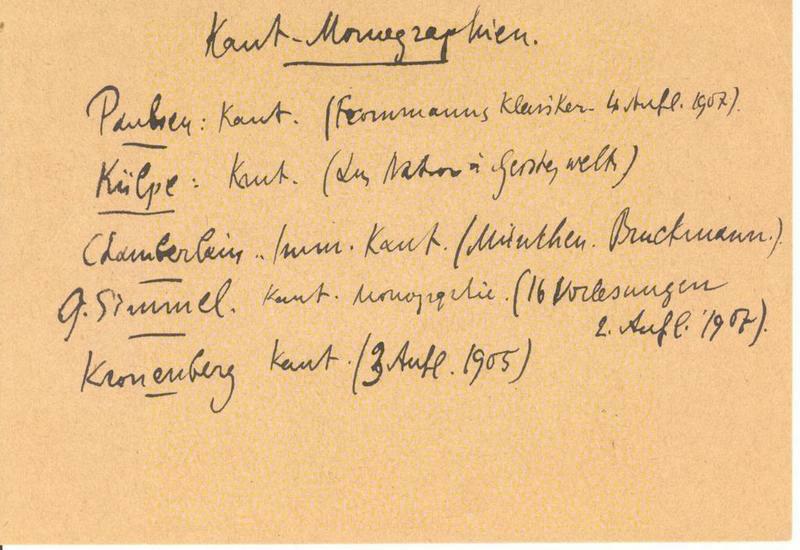 Kant-Monographien.
Paulsen: Kant. (Frommanns Klassiker. 4. Aufl. 1907).
Külpe: Kant. (Aus Natur u Geisteswelt)
Chamberlain.. Imm. Kant. (München. Bruckmann.)
G. Simmel. Kant. Monographie. (16 Vorlesungen
2. Aufl. 1907).
Kronenberg Kant. (3 Aufl. 1905)